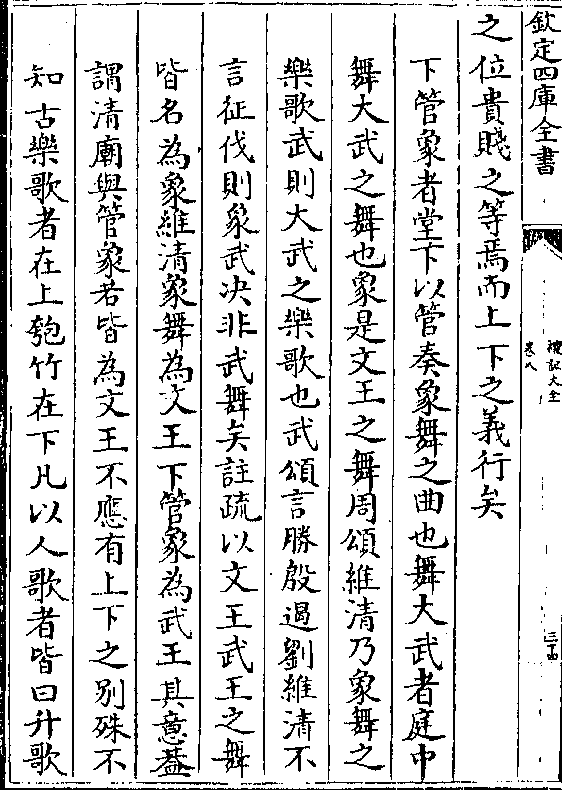 欽定四庫全書
禮記大全
卷八
三十四
之位貴賤之等焉而上下之義行矣
下管象者堂下以管奏象舞之曲也舞大武者庭中
舞大武之舞也象是文王之舞周頌維清乃象舞之
樂歌武則大武之樂歌也武頌言勝殷遏劉維清不
言征伐則象武决非武舞矣註疏以文王武王之舞
皆名為象維清象舞為文王下管象為武王其意蓋
謂清廟與管象若皆為文王不應有上下之别殊不
知古樂歌者在上匏竹在下凡以人歌者皆曰升歌